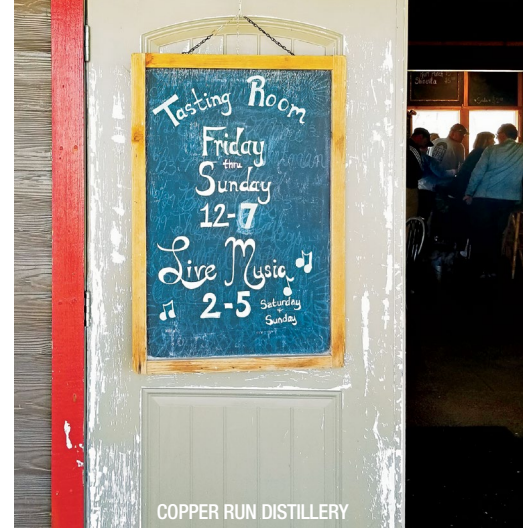 Tasting Room
Friday
thru
Sunday
12-7
Live Music
2-5 Saturday
+
Sunday
COPPER RUN DISTILLERY